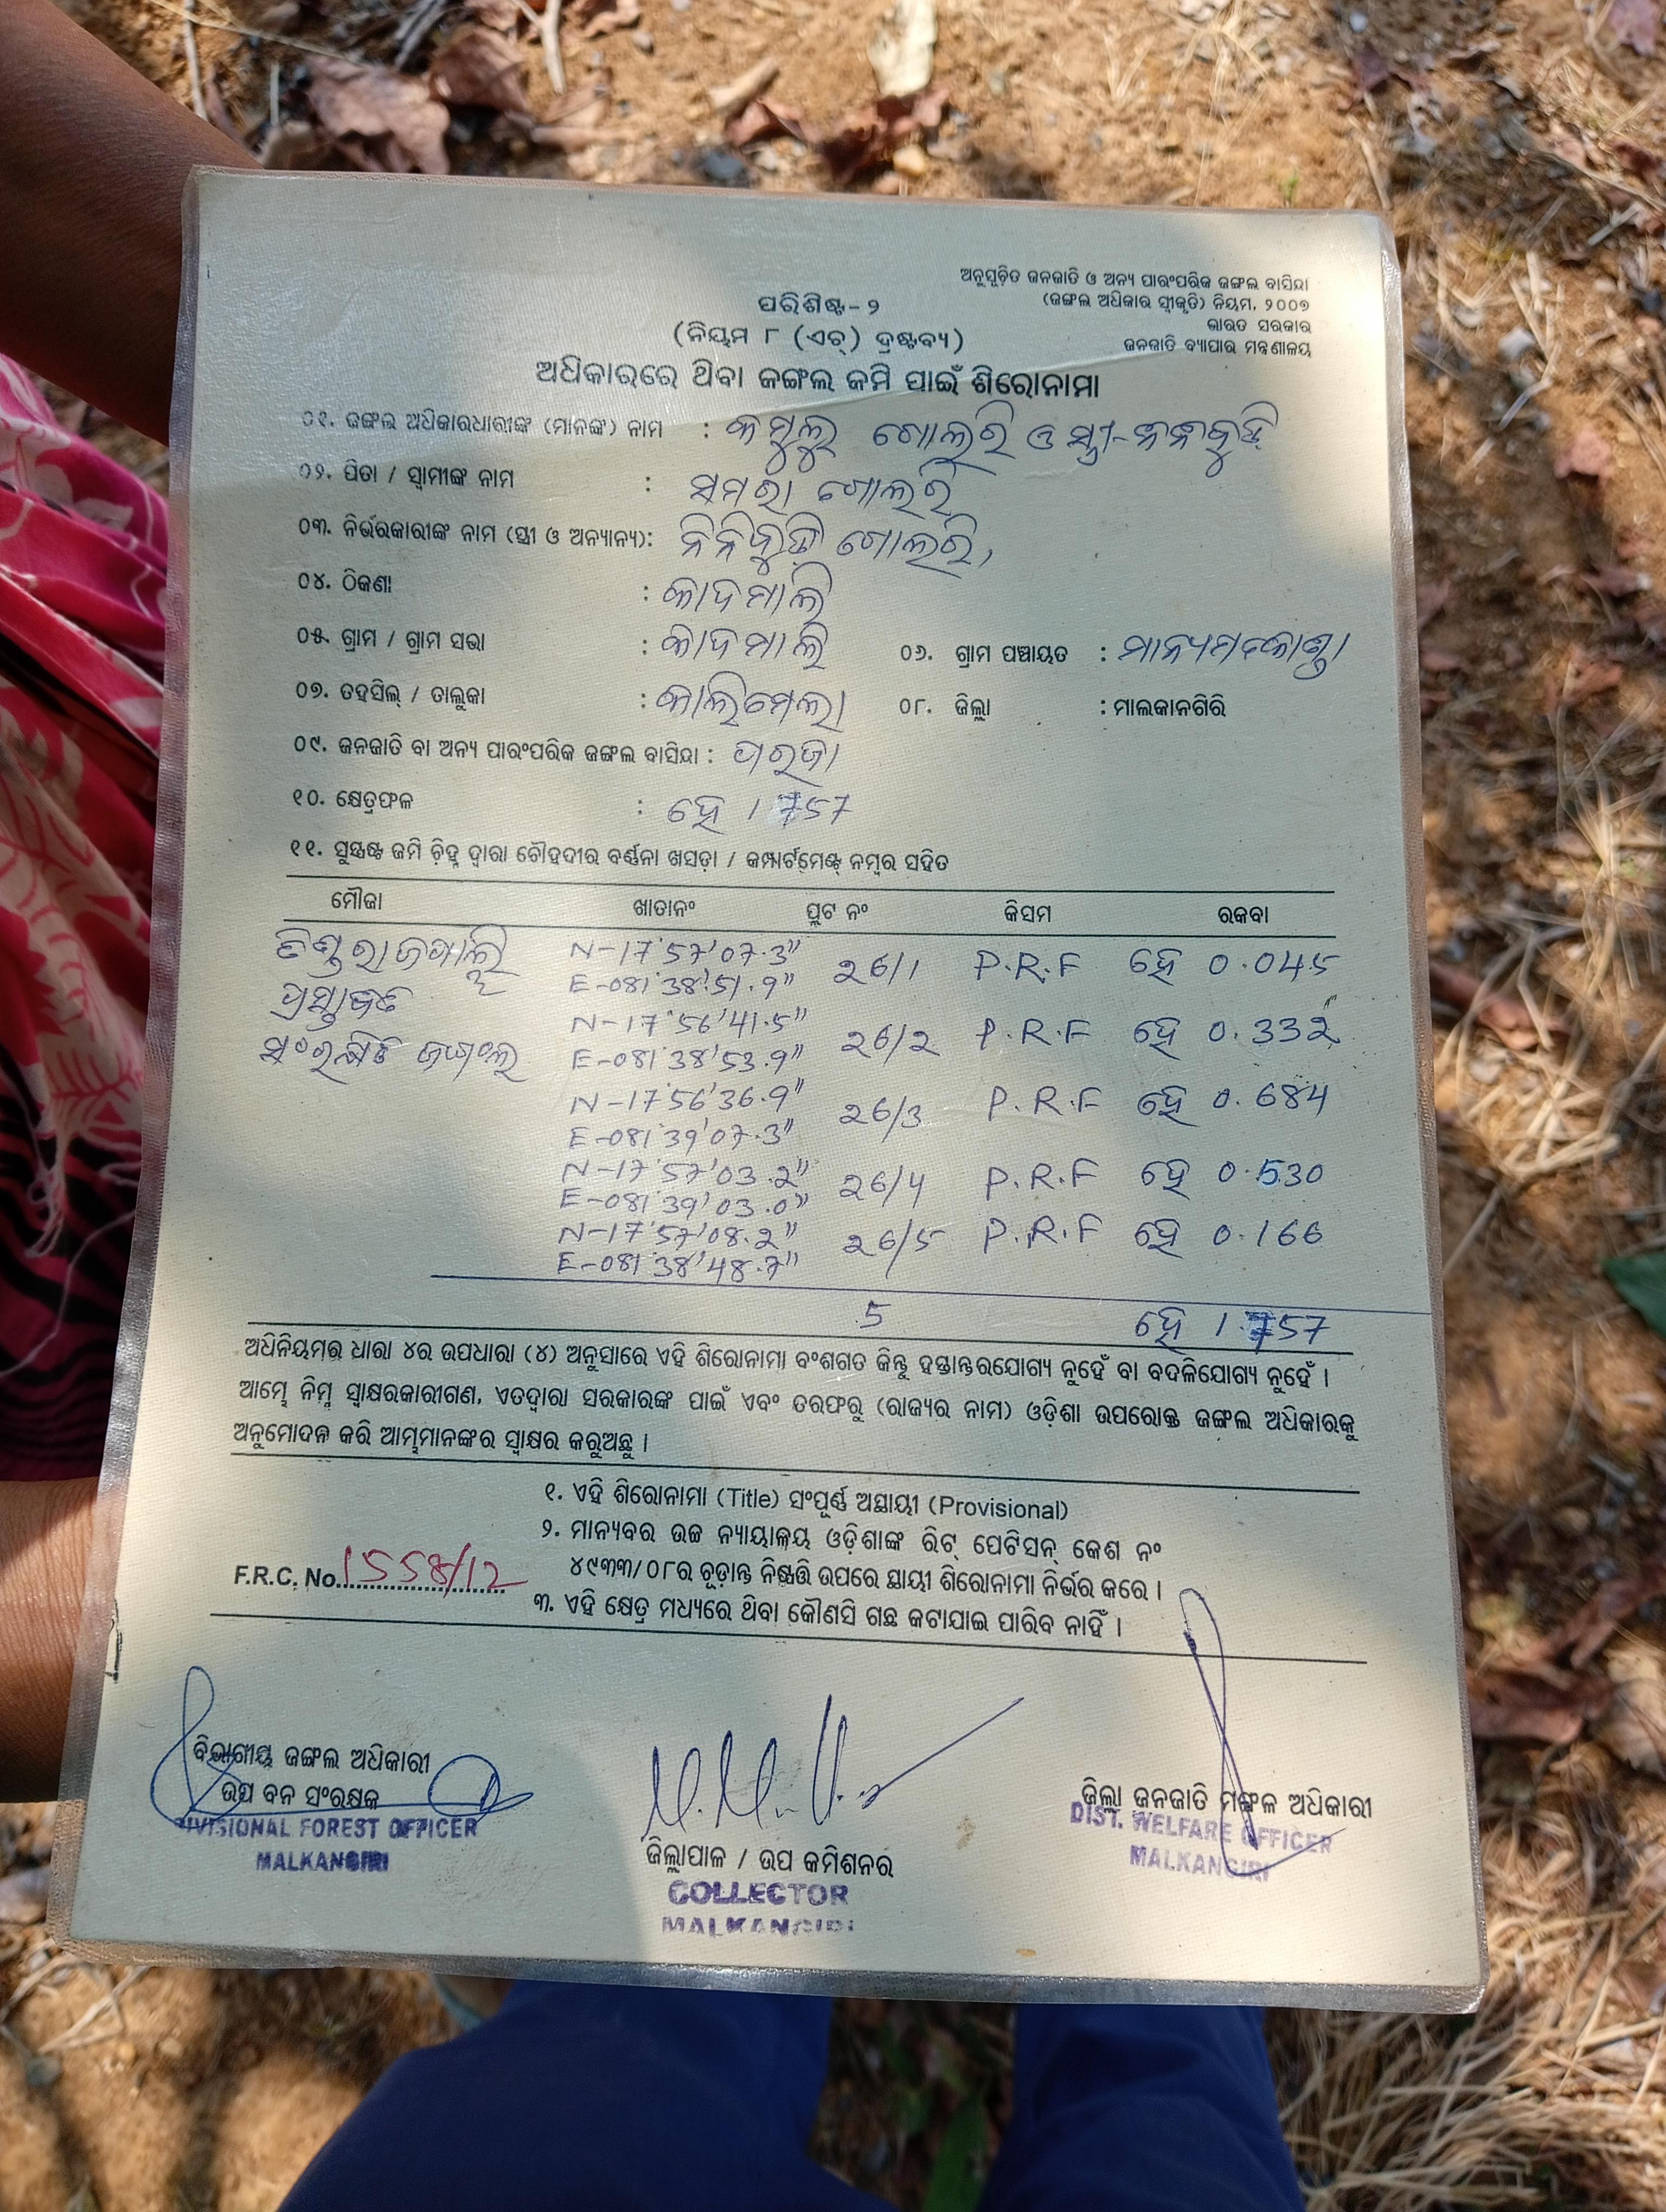 ଅନୁସୂଚିତ ଜନଜାତି ଓ ଅନ୍ୟ ପାରଂପରିକ ଜଙ୍ଗଲ ବାସିନ୍ଦା
(ଜଙ୍ଗଲ ଅଧିକାର ସ୍ୱୀକୃତି) ନିୟମ, ୨୦୦୭
ଭାରତ ସରକାର
ଜନଜାତି ବ୍ୟାପାର ମନ୍ତ୍ରଣାଳୟ
ପରିଶିଷ୍ଟ-୨
(ନିୟମ ୮ (ଏଚ୍) ଦ୍ରଷ୍ଟବ୍ୟ)
ଅଧିକାରରେ ଥିବା ଜଙ୍ଗଲ ଜମି ପାଇଁ ଶିରୋନାମା
୦୧. ଜଙ୍ଗଲ ଅଧିକାରଧାରୀଙ୍କ (ମାନଙ୍କ) ନାମ : ଗୋଲରି ଓ ସ୍ତ୍ରୀ-
୦୨. ପିତା / ସ୍ୱାମୀଙ୍କ ନାମ : ସମରା ଗୋଲରି
୦୩. ନିର୍ଭରକାରୀଙ୍କ ନାମ (ସ୍ତ୍ରୀ ଓ ଅନ୍ୟାନ୍ୟ): ଗୋଲରି,
୦୪. ଠିକଣା : କାଦମାଲି
୦୫. ଗ୍ରାମ / ଗ୍ରାମ ସଭା : କାଦମାଲି ୦୬. ଗ୍ରାମ ପଞ୍ଚାୟତ :
୦୭. ତହସିଲ୍ / ତାଲୁକା : କାଲିମେଲା ୦୮. ଜିଲ୍ଲା : ମାଲକାନଗିରି
୦୯. ଜନଜାତି ବା ଅନ୍ୟ ପାରଂପରିକ ଜଙ୍ଗଲ ବାସିନ୍ଦା : ପରଜା
୧୦. କ୍ଷେତ୍ରଫଳ : ହେ 1.757
୧୧. ସୁସ୍ପଷ୍ଟ ଜମି ଚିହ୍ନ ଦ୍ୱାରା ଚୌହଦୀର ବର୍ଣ୍ଣନା ଖସଡ଼ା / କମ୍ପାର୍ଟମେଣ୍ଟ୍ ନମ୍ବର ସହିତ
ମୌଜା ଖାତାନଂ ପ୍ଲଟ ନଂ କିସମ ରକବା
N-17°57'07.3"
E-081°38'51.9" 26/1 P.R.F ହେ 0.045
ପ୍ରସ୍ତାବିତ N-17°56'41.5"
ସଂରକ୍ଷିତ ଜଙ୍ଗଲ E-081°38'53.9" 26/2 P.R.F ହେ 0.332
N-17°56'36.9"
E-081°39'07.3" 26/3 P.R.F ହେ 0.684
N-17°57'03.2"
E-081°39'03.0" 26/4 P.R.F ହେ 0.530
N-17°57'08.2"
E-081°38'48.7" 26/5 P.R.F ହେ 0.166
5 ହେ 1.757
ଅଧିନିୟମର ଧାରା ୪ର ଉପଧାରା (୪) ଅନୁସାରେ ଏହି ଶିରୋନାମା ବଂଶଗତ କିନ୍ତୁ ହସ୍ତାନ୍ତରଯୋଗ୍ୟ ନୁହେଁ ବା ବଦଳିଯୋଗ୍ୟ ନୁହେଁ ।
ଆମ୍ଭେ ନିମ୍ନ ସ୍ୱାକ୍ଷରକାରୀଗଣ, ଏତଦ୍ୱାରା ସରକାରଙ୍କ ପାଇଁ ଏବଂ ତରଫରୁ (ରାଜ୍ୟର ନାମ) ଓଡ଼ିଶା ଉପରୋକ୍ତ ଜଙ୍ଗଲ ଅଧିକାରକୁ
ଅନୁମୋଦନ କରି ଆମ୍ଭମାନଙ୍କର ସ୍ୱାକ୍ଷର କରୁଅଛୁ ।
୧. ଏହି ଶିରୋନାମା (Title) ସଂପୂର୍ଣ୍ଣ ଅସ୍ଥାୟୀ (Provisional)
୨. ମାନ୍ୟବର ଉଚ୍ଚ ନ୍ୟାୟାଳୟ ଓଡ଼ିଶାଙ୍କ ରିଟ୍ ପେଟିସନ୍ କେଶ ନଂ
୪୯୩୩/୦୮ର ଚୂଡ଼ାନ୍ତ ନିଷ୍ପତ୍ତି ଉପରେ ସ୍ଥାୟୀ ଶିରୋନାମା ନିର୍ଭର କରେ ।
F.R.C. No. 1558/12
୩. ଏହି କ୍ଷେତ୍ର ମଧ୍ୟରେ ଥିବା କୌଣସି ଗଛ କଟାଯାଇ ପାରିବ ନାହିଁ ।
ବିଭାଗୀୟ ଜଙ୍ଗଲ ଅଧିକାରୀ
ଉପ ବନ ସଂରକ୍ଷକ
DIVISIONAL FOREST OFFICER
MALKANGIRI
ଜିଲ୍ଲାପାଳ / ଉପ କମିଶନର
COLLECTOR
MALKANGIRI
ଜିଲ୍ଲା ଜନଜାତି ମଙ୍ଗଳ ଅଧିକାରୀ
DIST. WELFARE OFFICER
MALKANGIRI